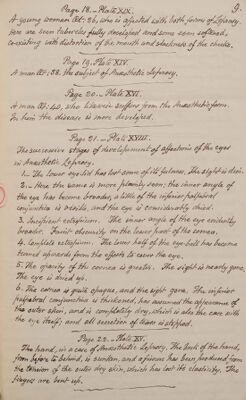 9.
Page 18 - Plate XIX.
A young woman Æt: 26, who is affected with both forms of Leprosy.
Here are seen tubercles fully developed and some seen softened,
coexisting with distortion of the mouth and slackness of the cheeks.
Page 19. Plate XIV.
A man Æt: 38. the subject of Anæsthetic Leprosy.
Page 20. - Plate XVI.
A man Æt: 40, who likewise suffers from the Anæsthetic form.
In him the disease is more developed.
Page 21. - Plate XVIII.
The successive stages of development of affections of the eyes
in Anæsthetic Leprosy.
1. The lower eyelid has lost some of its fulness, The sight is dim.
2. Here the same is more plainly seen; the inner angle of
the eye has become broader, a little of the inferior palpebral
conjunctiva is visible, and the eye is considerably dried.
3. Incipient ectropium. The inner angle of the eye evidently
broader. Faint obscurity on the lower part of the cornea.
4. Complete ectropium. The lower half of the eye-ball has become
turned upwards from the efforts to cover the eye.
5. The opacity of the cornea is greater. The sight is nearly gone.
The eye is dried up.
6. The cornea is quite opaque, and the sight gone. The inferior
palpebral conjunctiva is thickened, has assumed the appearance of
the outer skin, and is completely dry, which is also the case with
the eye itself; and all secretion of tears is stopped.
Page 22. - Plate XV.
The hand, in a case of Anæsthetic Leprosy. The back of the hand,
from before to behind, is sunken, and a fissure has been produced, from
the tension of the outer dry skin, which has lost its elasticity. The
fingers are bent up.